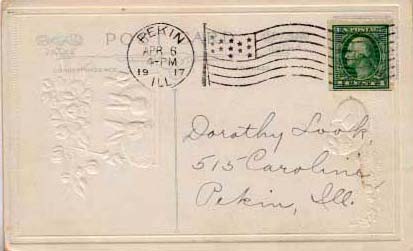 PEKIN
APR 6
4-PM
1917
ILL
U.S. POSTAGE
1 CENT 1
Dorothy Look,
515 Caroline
Pekin, Ill.